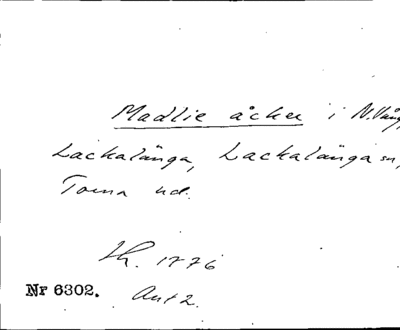 Madlie åcker i N. Vång,
Lackalänga, Lackalänga sn,
Torna hd.
1776
Nr 6302. Ant 2.